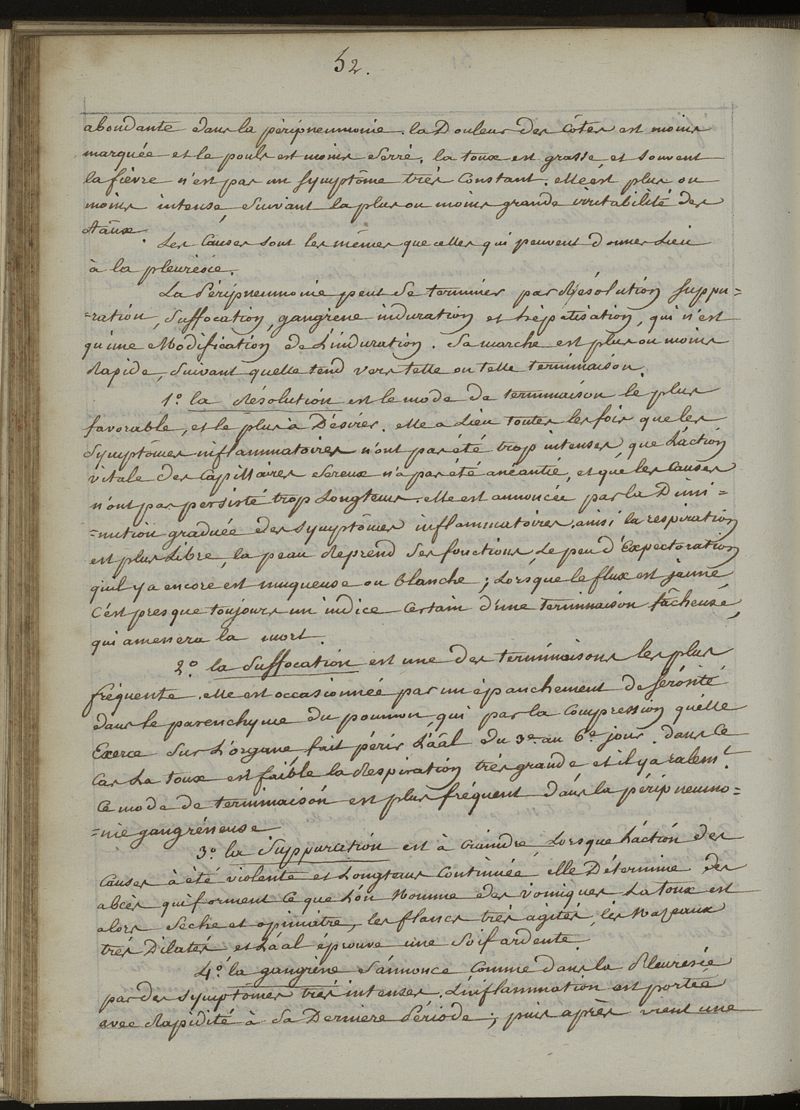 52.
abondante dans la péripneumonie. la Douleur des Côtes est moins
marquée et le pouls est moins Serré, la toux est grasse, et Souvent
la fièvre n'est pas un Symptôme très Constant. elle est plus ou
moins intense, Suivant la plus ou moins grande irritabilité des
Aãux.
Les Causes sont les mêmes que celles qui peuvent donner Lieu
à la pleurésie.
La Péripneumonie peut Se terminer par Résolution, Suppu=
=ration, Suffocation, gangrène induration et hépatisation, qui n'est
qu'une Modification de L'induration. Sa marche est plus ou moins
Rapide, Suivant quelle tend vers telle ou telle terminaison.
1.º la Résolution est le mode de terminaison le plus
favorable, et le plus à Désirer. elle a Lieu toutes les fois que les
Symptômes inflammatoires n'ont pas été trop intenses, que L'action
vitale des Capillaires Sereux n'a pas été anéantie, et que les Causes
n'ont pas persisté trop Longtems. elle est annoncée par la Dimi=
=nution graduée des symptômes inflammatoires, ainsi la respiration
est plus Libre, la peau Reprend Ses fonctions, Le peu d'Expectoration
qu'il y a encore est muqueuse ou blanche; Lorsque le flux est jaune
C'est presque toujours un indice Certain d'une terminaison fâcheuse,
qui amenera la mort.
2.º la Suffocation est une des terminaisons les plus
fréquente. elle est occasionnée par un épanchement de Sérosité
dans le parenchyme du poumon, qui par la Compression qu'elle
Exerce Sur L'organe fait périr L'aãl du 3e au 6e jour. dans Ce
Cas La toux est faible la Respiration très grande et il y a ralemt.
Ce mode de terminaison est plus fréquent dans la péripneumo=
=nie gangréneuse.
3.º la Suppuration est à Craindre, Lorsque L'action des
Causes à été violente et Longtems Continuée, elle Détermine des
abcès qui forment Ce que L'on Nomme des vomiques La toux est
alors Seche et opiniatre, les flancs très agités, les Nazeaux
très Dilatés et L'aãl éprouve une Soif ardente.
4.º la gangrène S'annonce Comme dans la Pleurésie
par des symptômes très intenses. L'inflammation est portée
avec Rapidité à Sa Derniere Période; puis après vient une